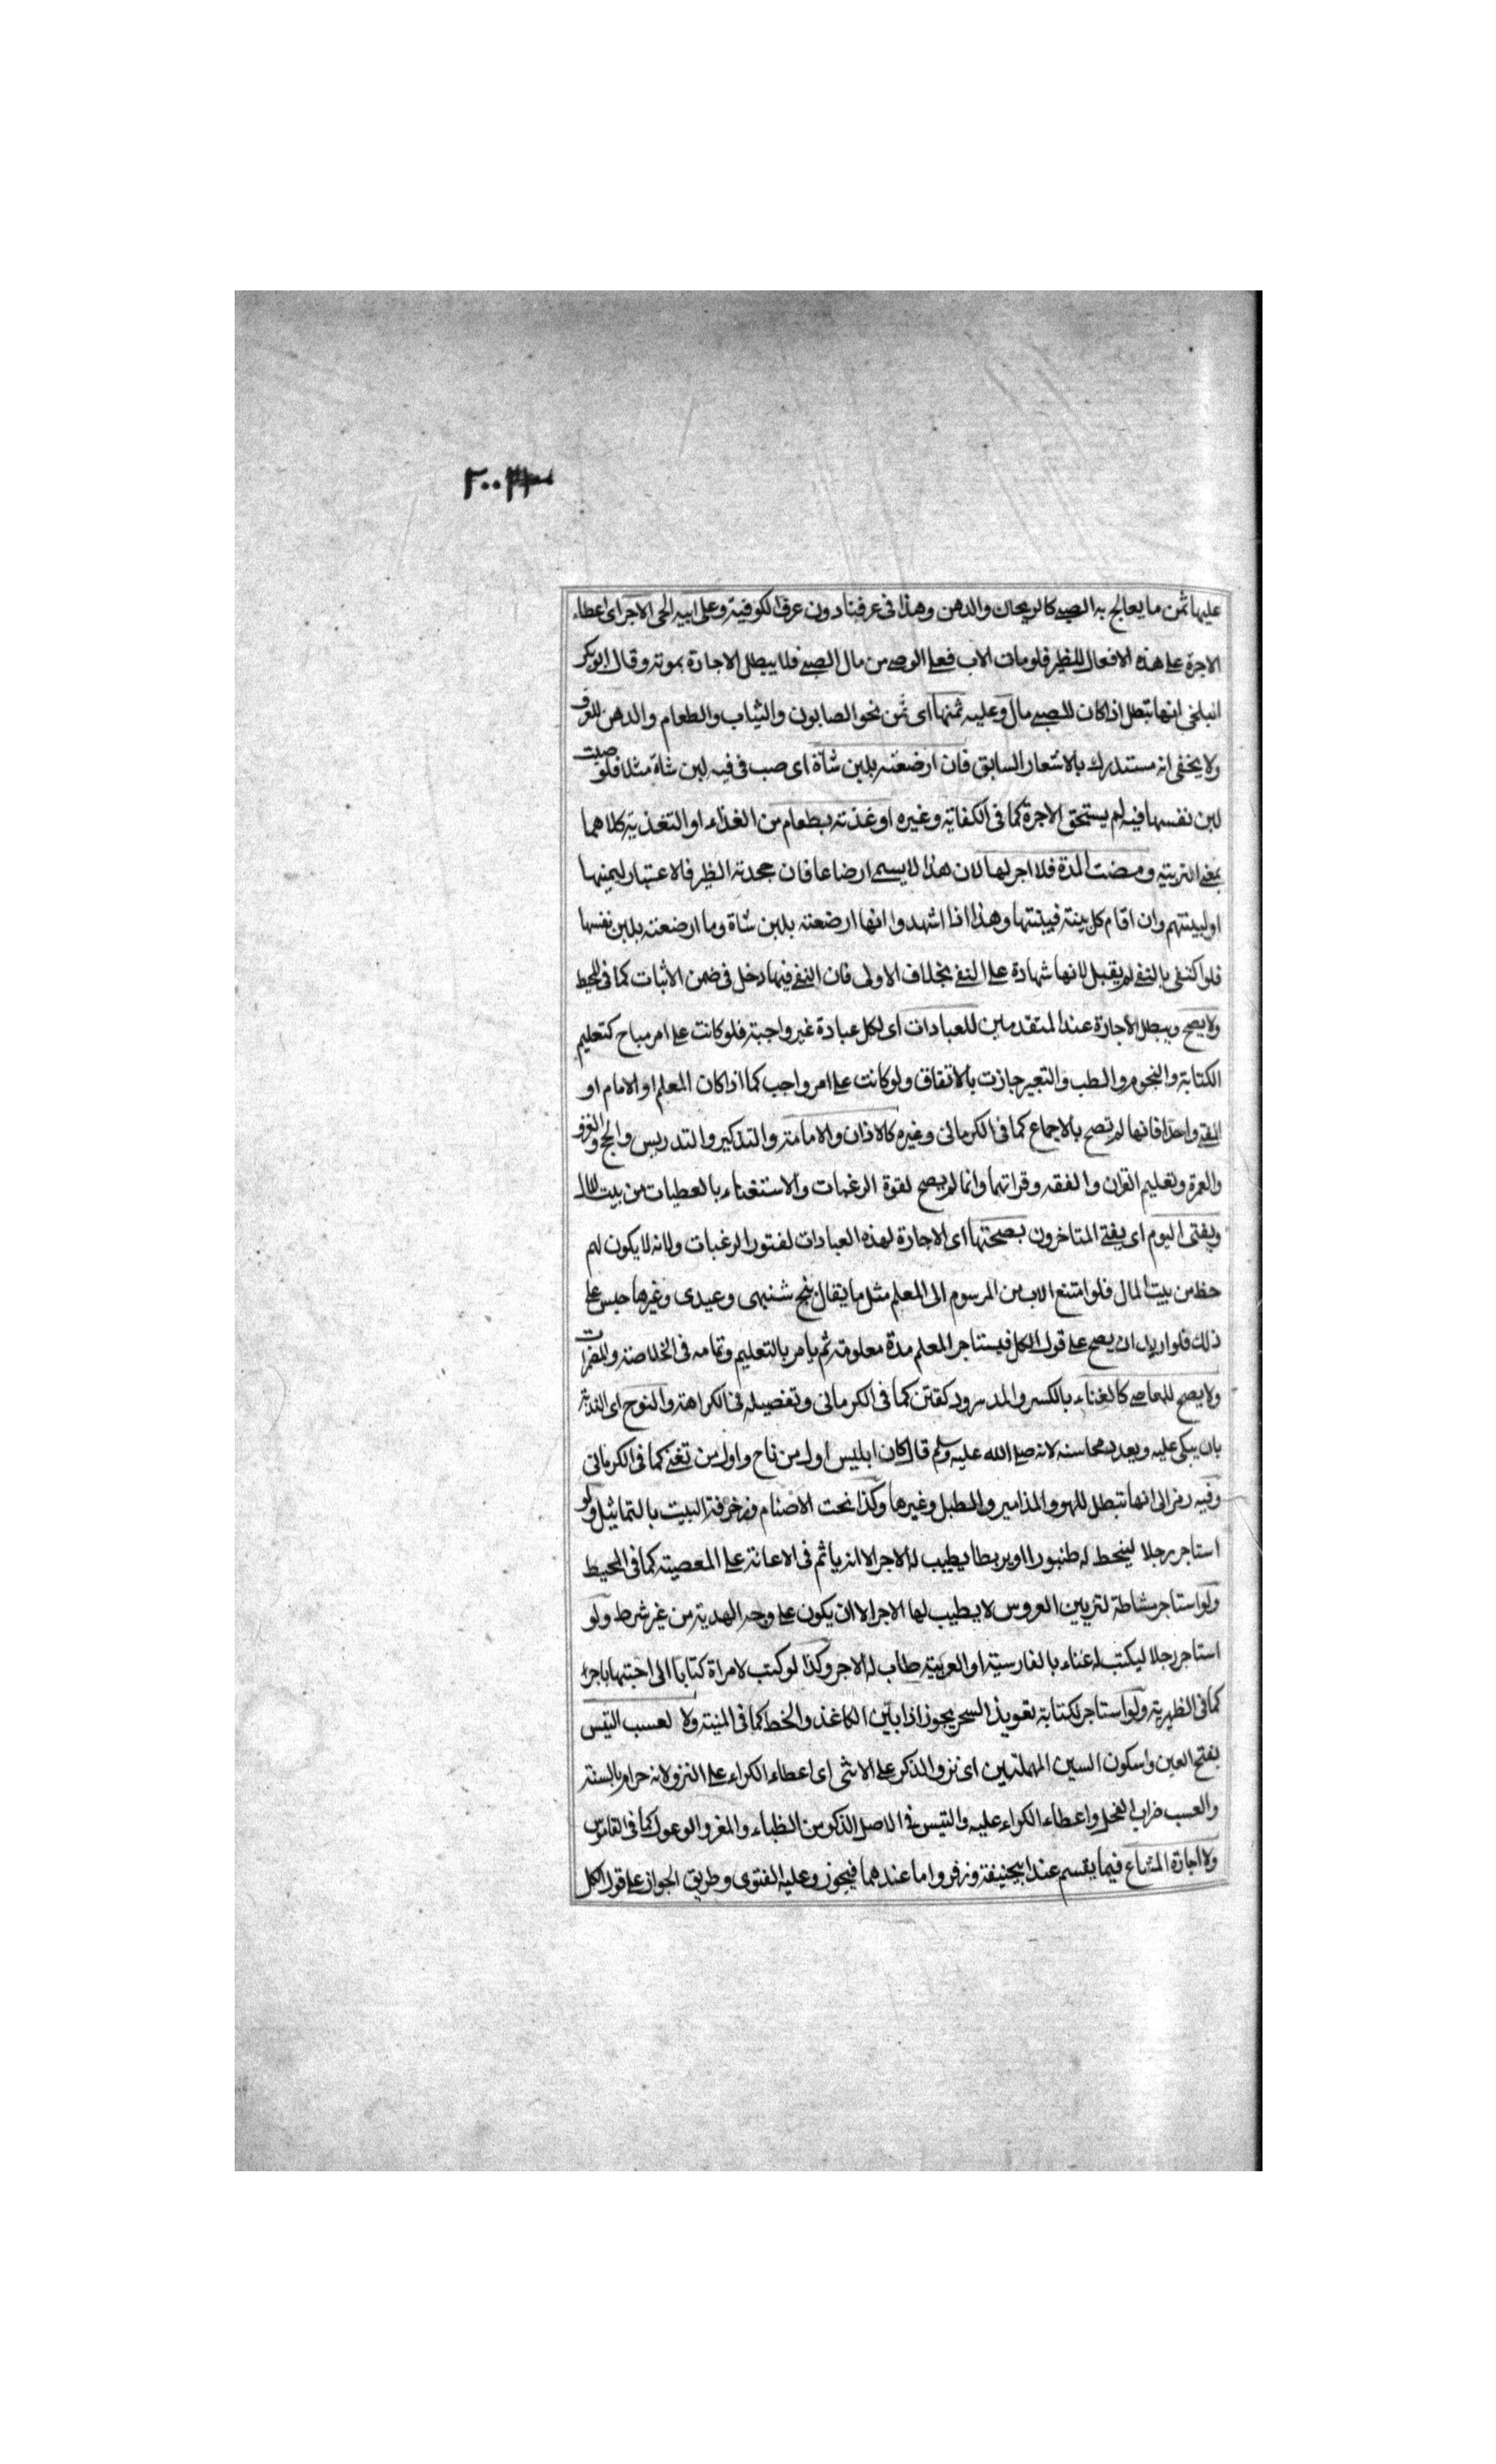 ٢٠٠٣
عليها ثمن ما يعالج به الصبي كالريحان والدهن وهذا في عرفنا دون عرف الكوفية وعلى ابيه الحي الاجر اى اعطاء
الاجرة على هذه الافعال للظئر فلو مات الاب فعلى الوصي من مال الصبي فلا يبطل الاجارة بموته وقال ابو بكر
البلخي انها تبطل اذا كان للصبي مال وعليه ثمنها اى ثمن نحو الصابون والثياب والطعام والدهن للعرف
ولا يخفى انه مستدرك بالاشعار السابق فان ارضعته بلبن شاة اى صب في فيه لبن شاة مثلا فلو صبت
لبن نفسها فيه لم يستحق الاجرة كما في الكفاية وغيره او غذته بطعام من الغذاء او التغذية كلاهما
بمعنى التربية ومضت المدة فلا اجر لها لان هذا لا يسمى ارضاعا فان جحدته الظئر فالاعتبار ليمينها
او لبينتهم وان اقام كل بينة فبينتها وهذا اذا اشهدوا انها ارضعته بلبن شاة وما ارضعته بلبن نفسها
فلو اكتفى بالنفي لم يقبل لانها شهادة على النفي بخلاف الاولى فان النفي فيها دخل في ضمن الاثبات كما في المحيط
ولا يصح ويبطل الاجارة عند المتقدمين للعبادات اى لكل عبادة غير واجبة فلو كانت على امر مباح كتعليم
الكتابة والنجوم والطب والتعبير جازت بالاتفاق ولو كانت على امر واجب كما اذا كان المعلم او الامام او
المفتي واحدا فانها لم تصح بالاجماع كما في الكرماني وغيره كالاذان والامامة والتذكير والتدريس والحج والغزو
والعمرة وتعليم القران والفقه وقراتهما وانما لم يصح لقوة الرغبات والاستغناء بالعطيات من بيت المال
ويفتى اليوم اى يفتي المتاخرون بصحتها اى الاجارة لهذه العبادات لفتور الرغبات ولانه لا يكون لهم
حظ من بيت المال فلو امتنع الاب من المرسوم الى المعلم مثل ما يقال پنج شنبهى وعيدى وغيرها حبس على
ذلك فلو اريد ان يصح على قول الكل فيستاجر المعلم مدة معلومة ثم يامر بالتعليم وتمامه في الخلاصة والمضمرات
ولا يصح للمعاصي كالغناء بالكسر والمد سرود كفتن كما في الكرماني وتفصيله في الكراهة والنوح اى الندبة
بان يبكى عليه ويعدد محاسنه لانه صلى الله عليه وسلم قال كان ابليس اول من ناح واول من تغنى كما في الكرماني
وفيه رمز الى انها تبطل للهو والمذامير والطبل وغيرها وكذا نحت الاصنام وزخرفة البيت بالتماثيل ولو
استاجر رجلا لينحط له طنبورا او بربطا يطيب له الاجر الا انه ياثم في الاعانة على المعصية كما في المحيط
ولو استاجر مشاطة لتزيين العروس لا يطيب لها الاجر الا ان يكون على وجه الهدية من غير شرط ولو
استاجر رجلا ليكتب له غناء بالفارسية او العربية طاب له الاجر وكذا لو كتب لامراة كتابا الى احبتها باجر
كما في الظهيرية ولو استاجر لكتابة تعويذ السحر يجوز اذا بين الكاغذ والخط كما في المنية ولا لعسب التيس
بفتح العين وسكون السين المهملتين اى نزو الذكر على الانثى اى اعطاء الكراء على النزو لانه حرام بالسنة
والعسب ضراب الفحل واعطاء الكراء عليه والتيس في الاصل الذكر من الظباء والمغز والوعول كما في القاموس
ولا اجارة المشاع فيما يقسم عند ابيحنيفة وزفر واما عندهما فيجوز وعليه الفتوى وطريق الجواز على قول الكل